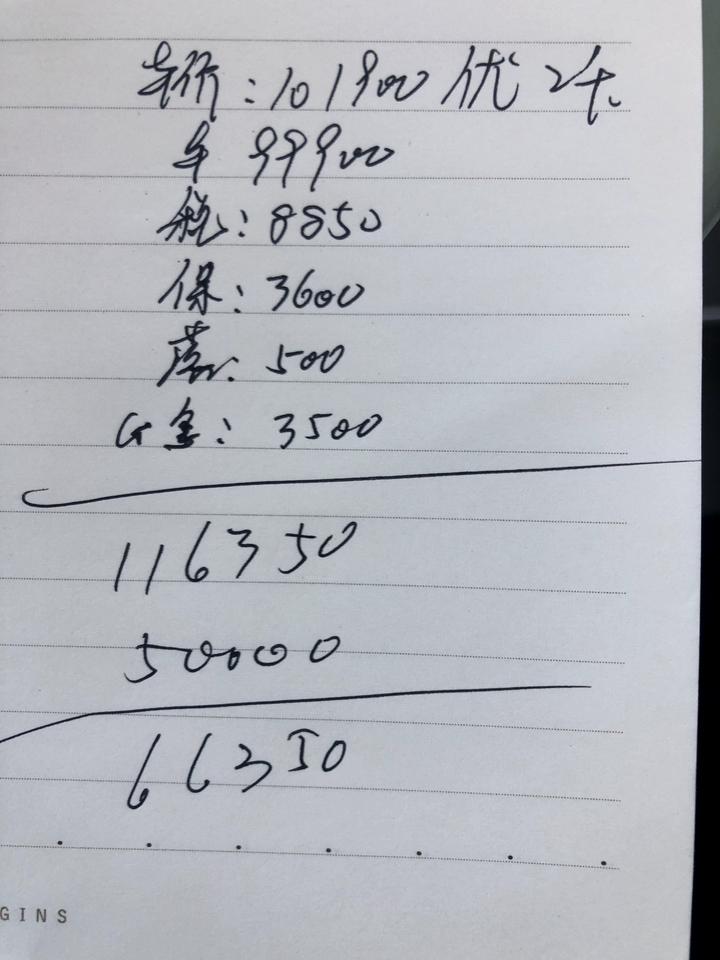 车价:101900 优2千.
车 99900
税:8850
保:3600
落: 500
G金: 3500
116350
50000
66350
GINS